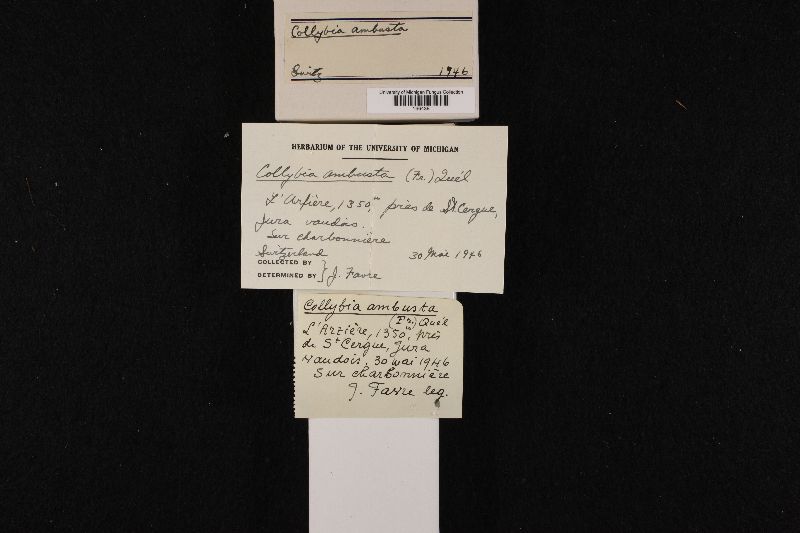 Collybia ambusta
Switz 1946
University of Michigan Fungus Collection
HERBARIUM OF THE UNIVERSITY OF MICHIGAN
Collybia ambusta (Fr.) Quél
L'Arzière, 1350,m près de St. Cergue,
Jura vaudois.
Sur charbonnière
Switzerland 30 Mai 1946
COLLECTED BY
DETERMINED BY } J. Favre
Collybia ambusta
(Fr.) Quél
L'Arzière, 1350m, près
de St Cergue, Jura
Vaudois, 30 mai 1946
Sur charbonnière
J. Favre leg.